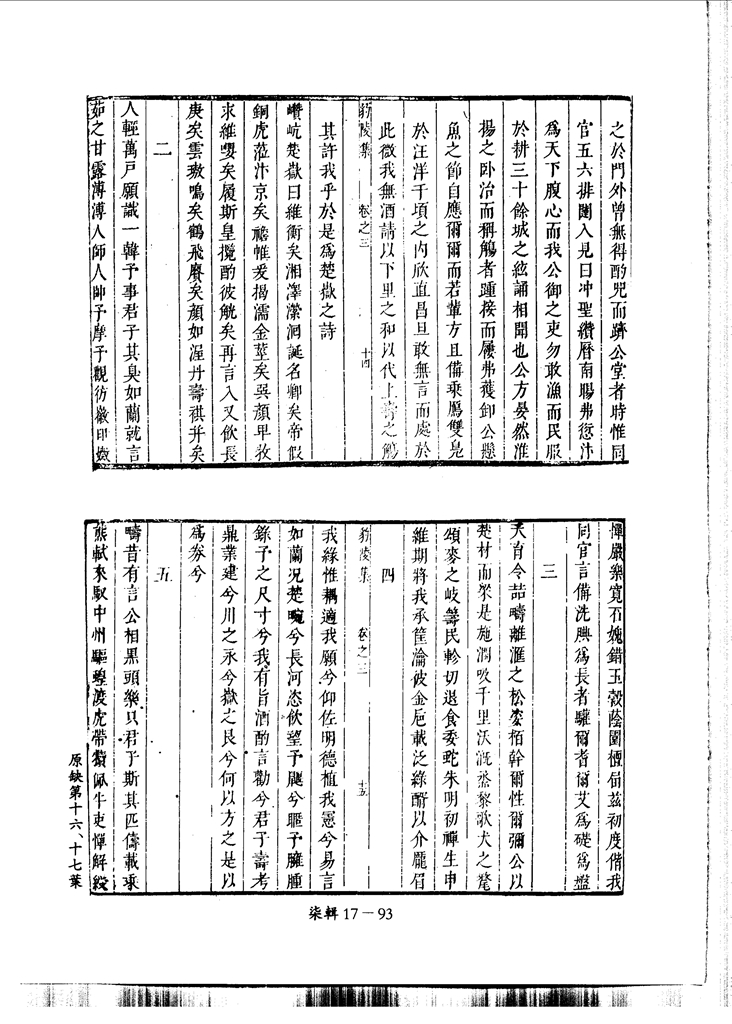 之於門外曾無得酌兕而躋公堂者時惟同
官五六排闥入見曰冲聖纘曆南賜弗愆汴
為天下腹心而我公御之吏勿敢漁而民服
於耕三十餘城之絃誦相聞也公方晏然淮
揚之卧治而稱觴者踵接而屨弗獲卸公懸
魚之節自應爾爾而若輩方且備乘鴈雙鳧
於汪洋千頃之内欣直昌旦敢無言而處於
此微我無酒請以下里之和以代上壽之觴
卷之三 十四
其許我乎於是為楚嶽之詩
巑岏楚嶽曰維衡矣湘澤瀠洄誕名卿矣帝假
銅虎蒞汴京矣襜帷爰揭濡金莖矣吳顏早攸
求維嬰矣履斯皇攬酌彼觥矣再言入又依長
庚矣雲璈鳴矣鶴飛賡矣顏如渥丹壽祺并矣
二
人輕萬戶願識一韓予事君子其臭如蘭就言
茹之甘露漙漙人師人帥予摩予觀彷徽印㩦
憚嚴樂寬不媿錯玉轂蔭圍檀茲初度偕我
同官言備洗腆為長者驩爾者爾艾為礎為盤
三
天育令喆疇離滙之松壑栢幹爾性爾彌公以
楚材而梁是施潤吸千里沃溉烝黎歌犬之氂
頌麥之岐籌民軫切退食委蛇朱明初禪生申
維期將我承筐瀹彼金卮載泛綠醑以介龎眉
四
卷之三 十五
我緣惟耦適我願兮仰佐明德植我憲兮易言
如蘭况楚畹兮長河恣飲望予颸兮匪予臃腫
錄予之尺寸兮我有旨酒酌言勸兮君子壽考
鼎業建兮川之永兮嶽之艮兮何以方之是以
為券兮
五
疇昔有言公相黑頭樂只君子斯其匹儔載乘
熊軾來馭中州驅蝗渡虎帶犢佩牛吏憚解綬
原缺第十六、十七葉
柒輯 17－93